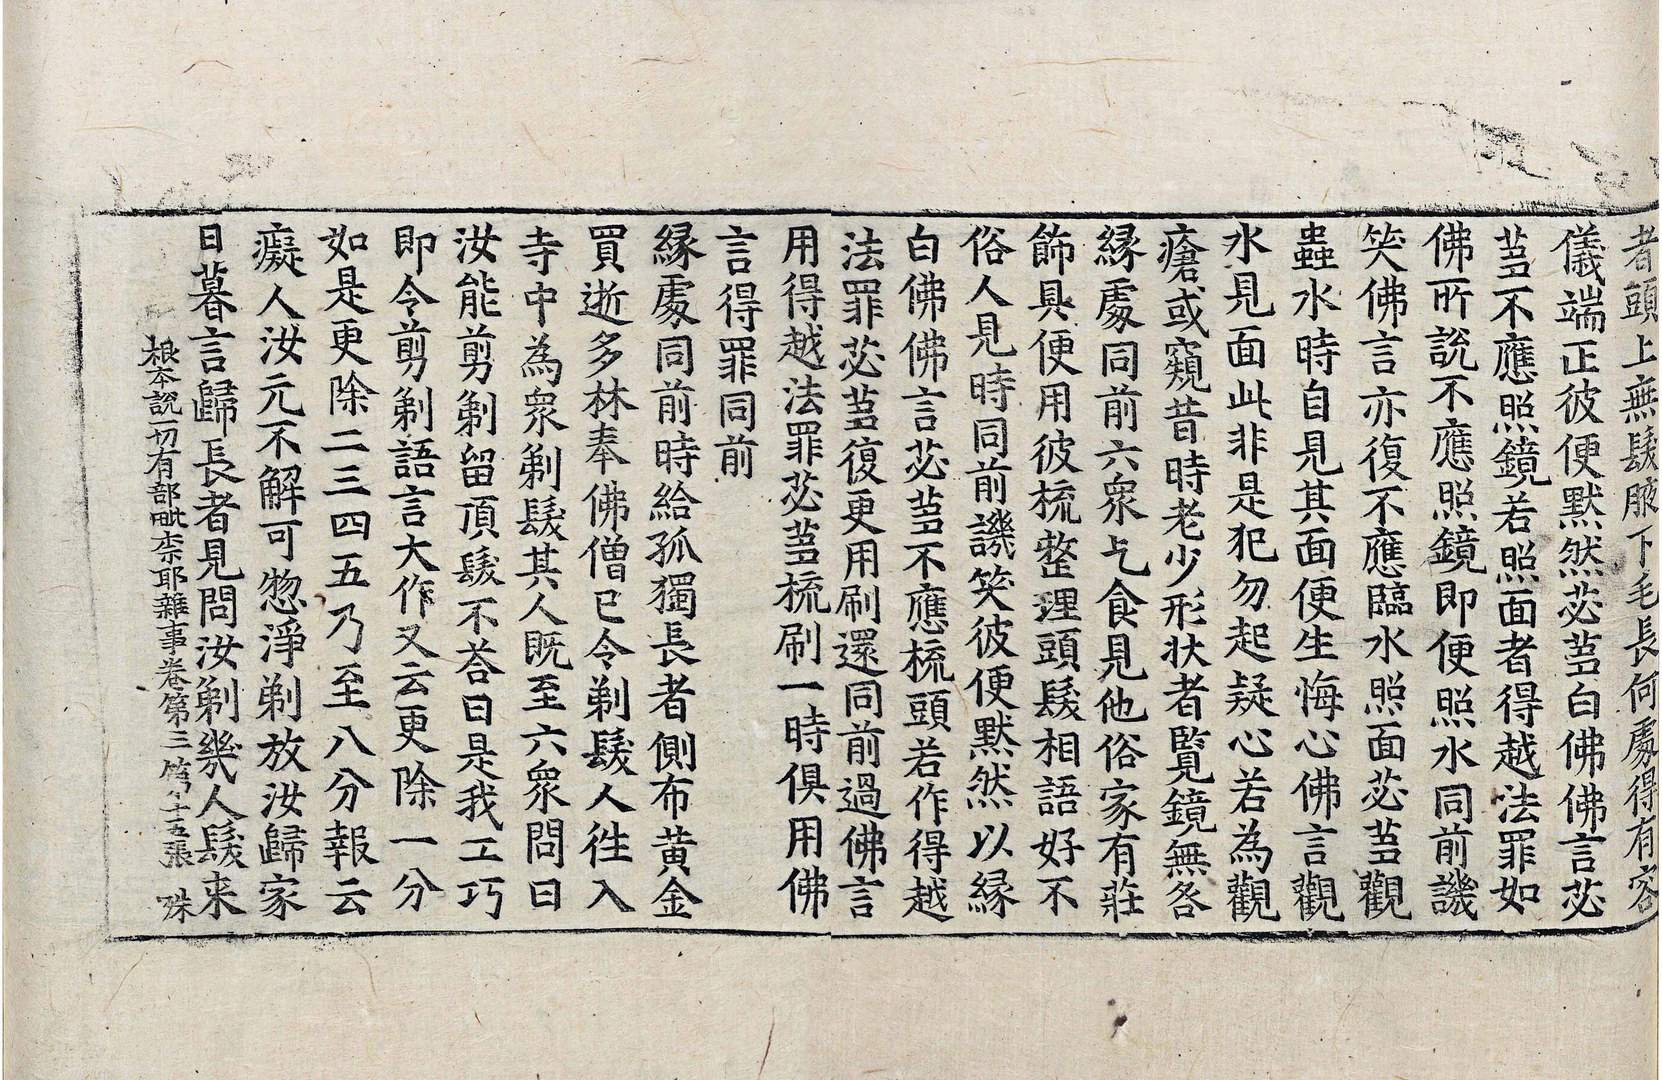 者頭上無髮腋下毛長何處得有容
儀端正彼便默然苾蒭白佛佛言苾
蒭不應照鏡若照面者得越法罪如
佛所說不應照鏡即便照水同前譏
笑佛言亦復不應臨水照面苾蒭觀
蟲水時自見其面便生悔心佛言觀
水見面此非是犯勿起疑心若為觀
瘡或窺昔時老少形狀者覧鏡無咎
緣處同前六衆乞食見他俗家有莊
飾具便用彼梳整理頭髮相語好不
俗人見時同前譏笑彼便默然以緣
白佛佛言苾蒭不應梳頭若作得越
法罪苾蒭復更用刷還同前過佛言
用得越法罪苾蒭梳刷一時俱用佛
言得罪同前
緣處同前時給孤獨長者側布黃金
買逝多林奉佛僧已令剃髮人往入
寺中為衆剃髮其人既至六衆問曰
汝能剪剃留頂髮不荅曰是我工巧
即令剪剃語言大作又云更除一分
如是更除二三四五乃至八分報云
癡人汝元不解可惣淨剃放汝歸家
日暮言歸長者見問汝剃幾人髮来
根本說一切有部毗柰耶雜事卷第三 第十五張 殊